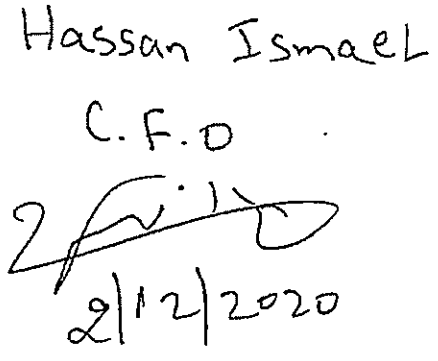 Hassan Ismael
C.F.O
2/12/2020